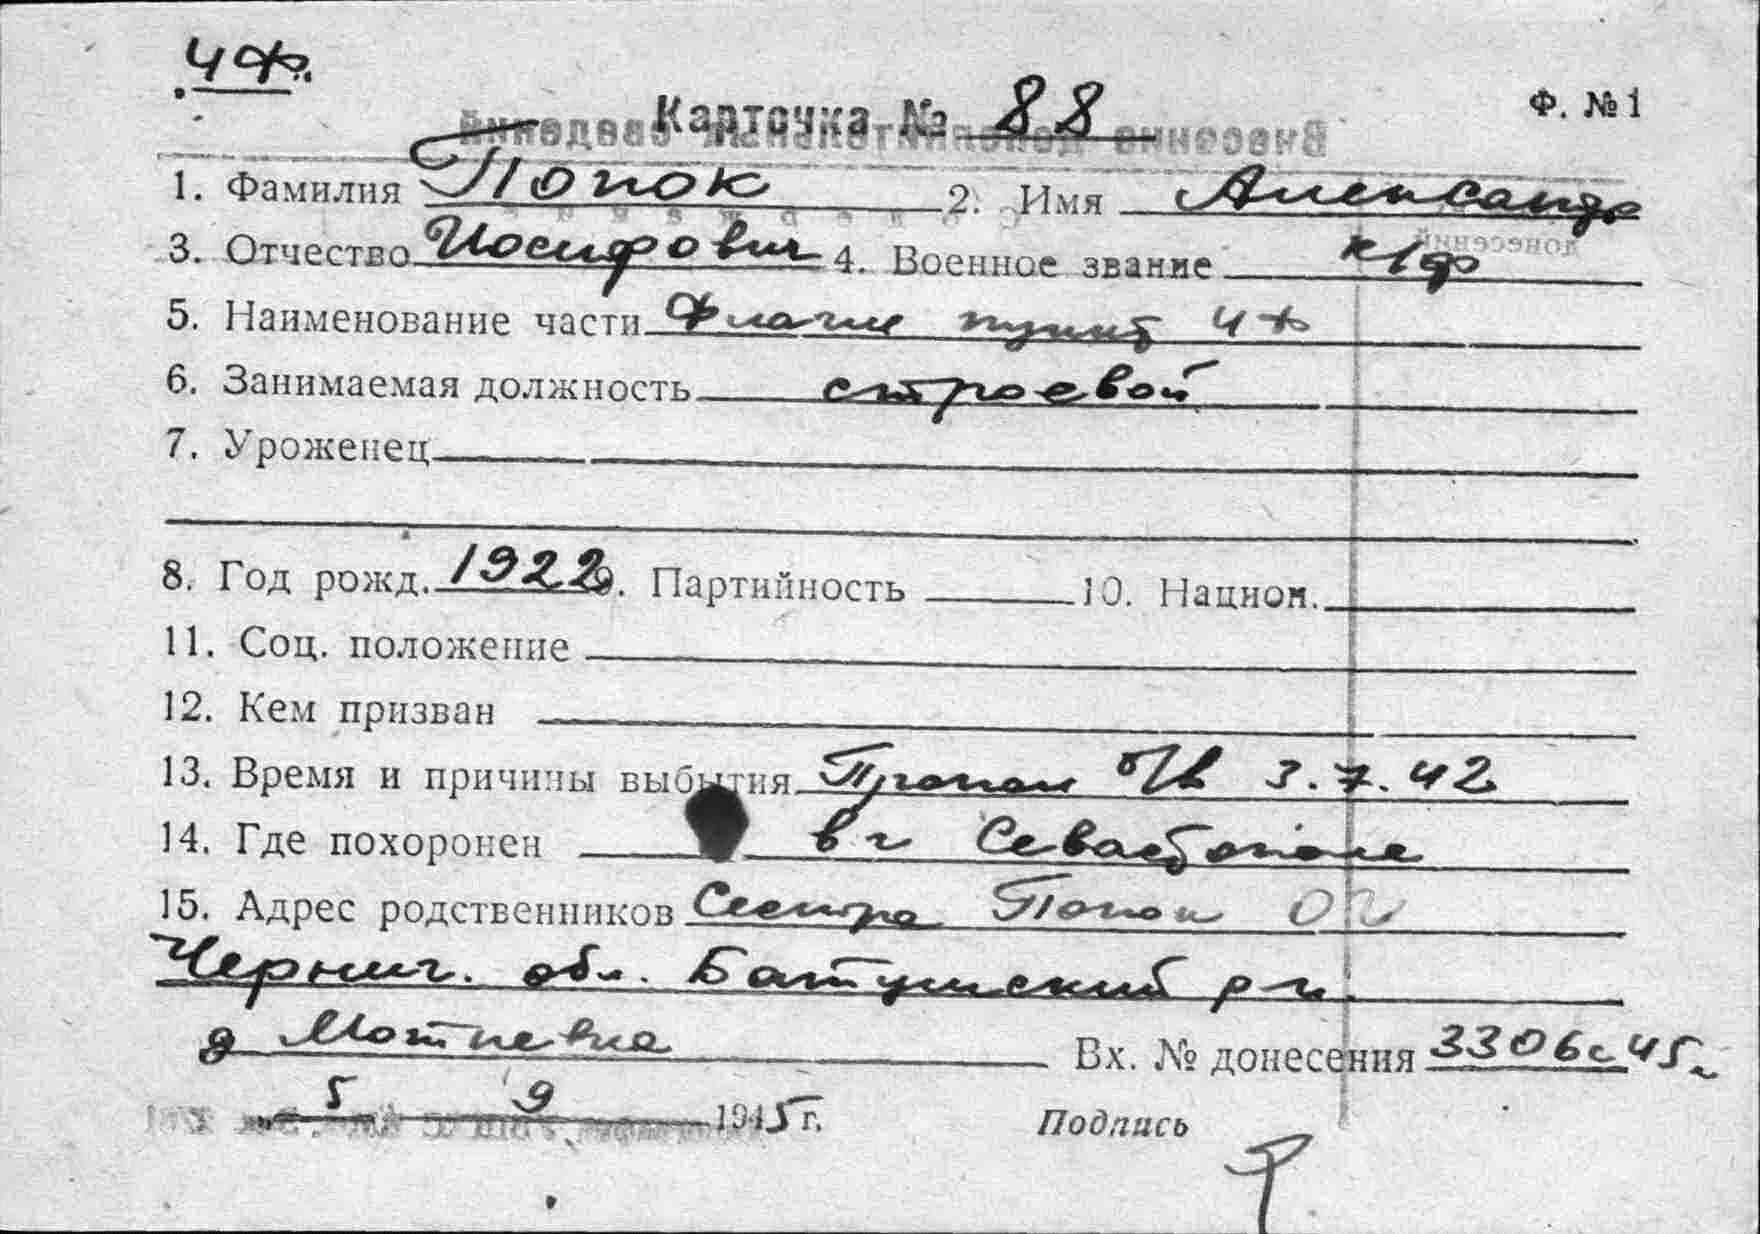 ЧФ.
Карточка № 88
Ф. № 1
1. Фамилия Попок 2. Имя Александр
3. Отчество Иосифович 4. Военное звание к/ф
5. Наименование части Флагм пункт ЧФ
6. Занимаемая должность строевой
7. Уроженец
8. Год рожд. 1922 9. Партийность 10. Национ.
11. Соц. положение
12. Кем призван
13. Время и причины выбытия Пропал б/в 3.7.42
14. Где похоронен в г Севастополе
15. Адрес родственников Сестра Попок
Черниг. обл. Батуринский р-н
д Матиевка Вх. № донесения 3306с 45г
„ 5 9 1945 г. Подпись